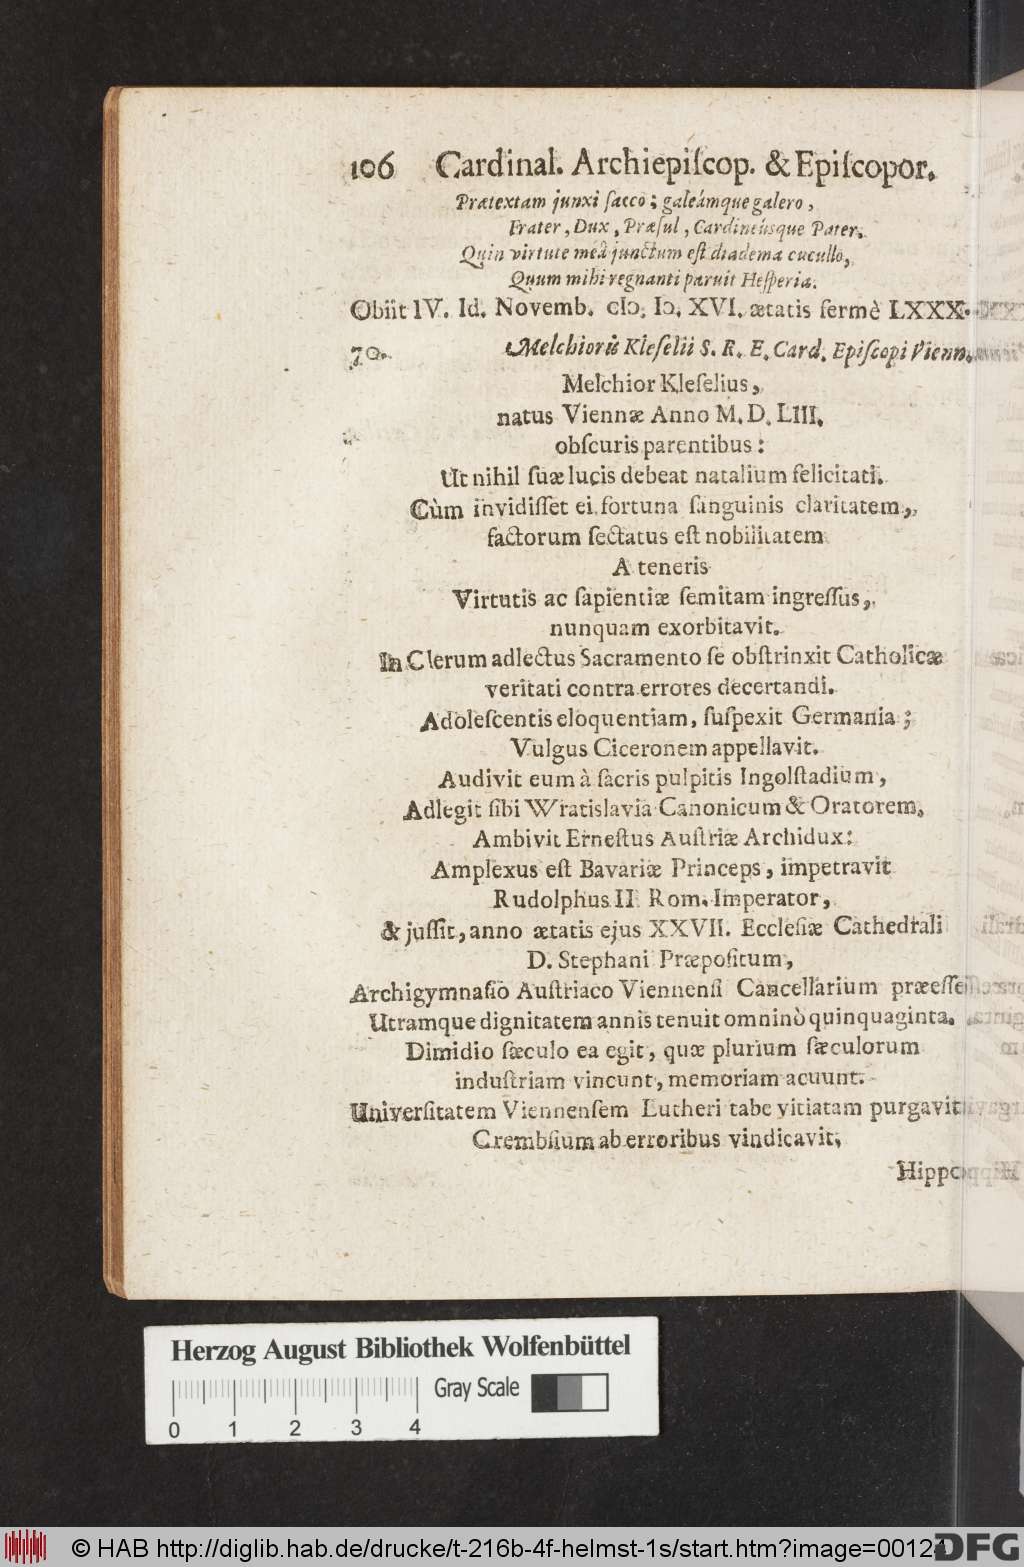 106 Cardinal. Archiepiſcop. & Epiſcopor.
Prætextam junxi ſacco; galeámque galero,
Frater, Dux, Præſul, Cardineúsque Pater.
Quin virtute meâ junctum eſt diadema cucullo,
Quum mihi regnanti paruit Heſperia.
Obiit IV. Id. Novemb. cIɔ. Iɔ. XVI. ætatis fermè LXXX.
70. Melchioris Kleſelii S. R. E. Card. Epiſcopi Vienn.
Melchior Kleſelius,
natus Viennæ Anno M. D. LIII.
obſcuris parentibus:
Ut nihil ſuæ lucis debeat natalium felicitati.
Cùm invidiſſet ei fortuna ſanguinis claritatem,
factorum ſectatus eſt nobilitatem
A teneris
Virtutis ac ſapientiæ ſemitam ingreſſus,
nunquam exorbitavit.
In Clerum adlectus Sacramento ſe obſtrinxit Catholicæ
veritati contra errores decertandi.
Adoleſcentis eloquentiam, ſuſpexit Germania;
Vulgus Ciceronem appellavit.
Audivit eum à ſacris pulpitis Ingolſtadium,
Adlegit ſibi Wratislavia Canonicum & Oratorem,
Ambivit Erneſtus Auſtriæ Archidux:
Amplexus eſt Bavariæ Princeps, impetravit
Rudolphus II. Rom. Imperator,
& juſſit, anno ætatis ejus XXVII. Eccleſiæ Cathedrali
D. Stephani Præpoſitum,
Archigymnaſio Auſtriaco Viennenſi Cancellarium præeſſe
Utramque dignitatem annis tenuit omninò quinquaginta.
Dimidio ſæculo ea egit, quæ plurium ſæculorum
induſtriam vincunt, memoriam acuunt.
Univerſitatem Viennenſem Lutheri tabe vitiatam purgavit
Crembſium ab erroribus vindicavit,
Hippo
Herzog August Bibliothek Wolfenbüttel
Gray Scale
0 1 2 3 4
© HAB http://diglib.hab.de/drucke/t-216b-4f-helmst-1s/start.htm?image=00124
DFG